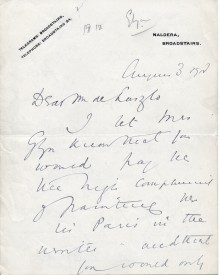 1912
Glyn
NALDERA,
BROADSTAIRS.
TELEGRAMS: BROADSTAIRS.
TELEPHONE: BROADSTAIRS
August 3. 1912
Dear Mr de Laszlo
I let Mrs
Glyn know that you
would pay her
the high compliment
of painting her
in Paris in the
winter and that
you would only